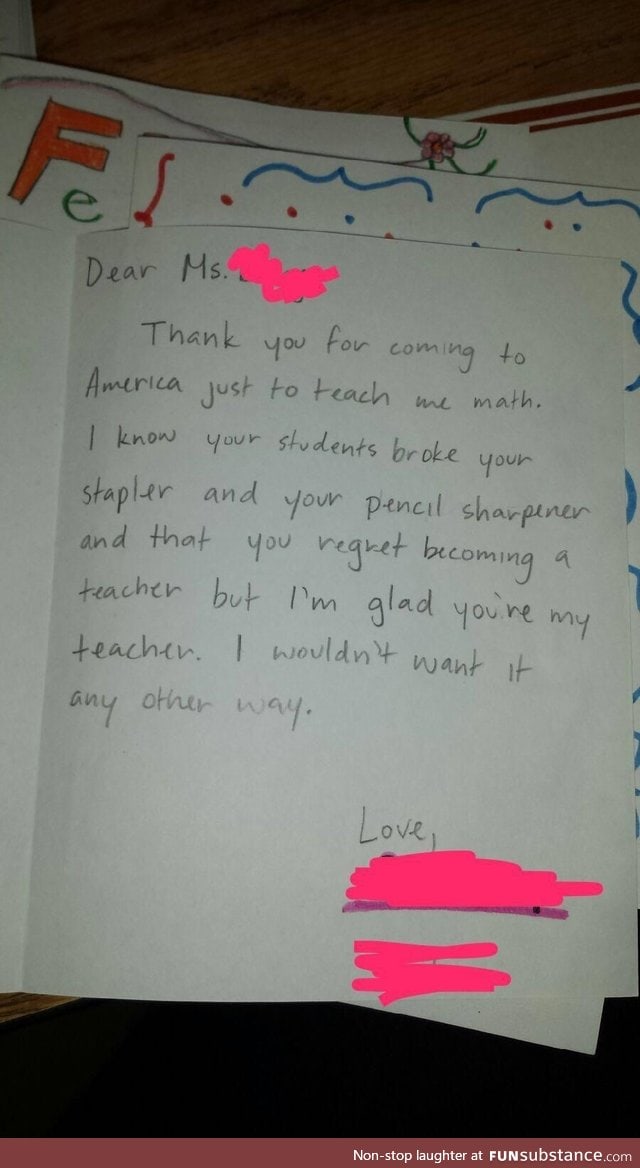 Fe
Dear Ms.
Thank you for coming to
America just to teach me math.
I know your students broke your
stapler and your pencil sharpener
and that you regret becoming a
teacher but I'm glad you're my
teacher. I wouldn't want it
any other way.
Love,
Non-stop laughter at FUNsubstance.com